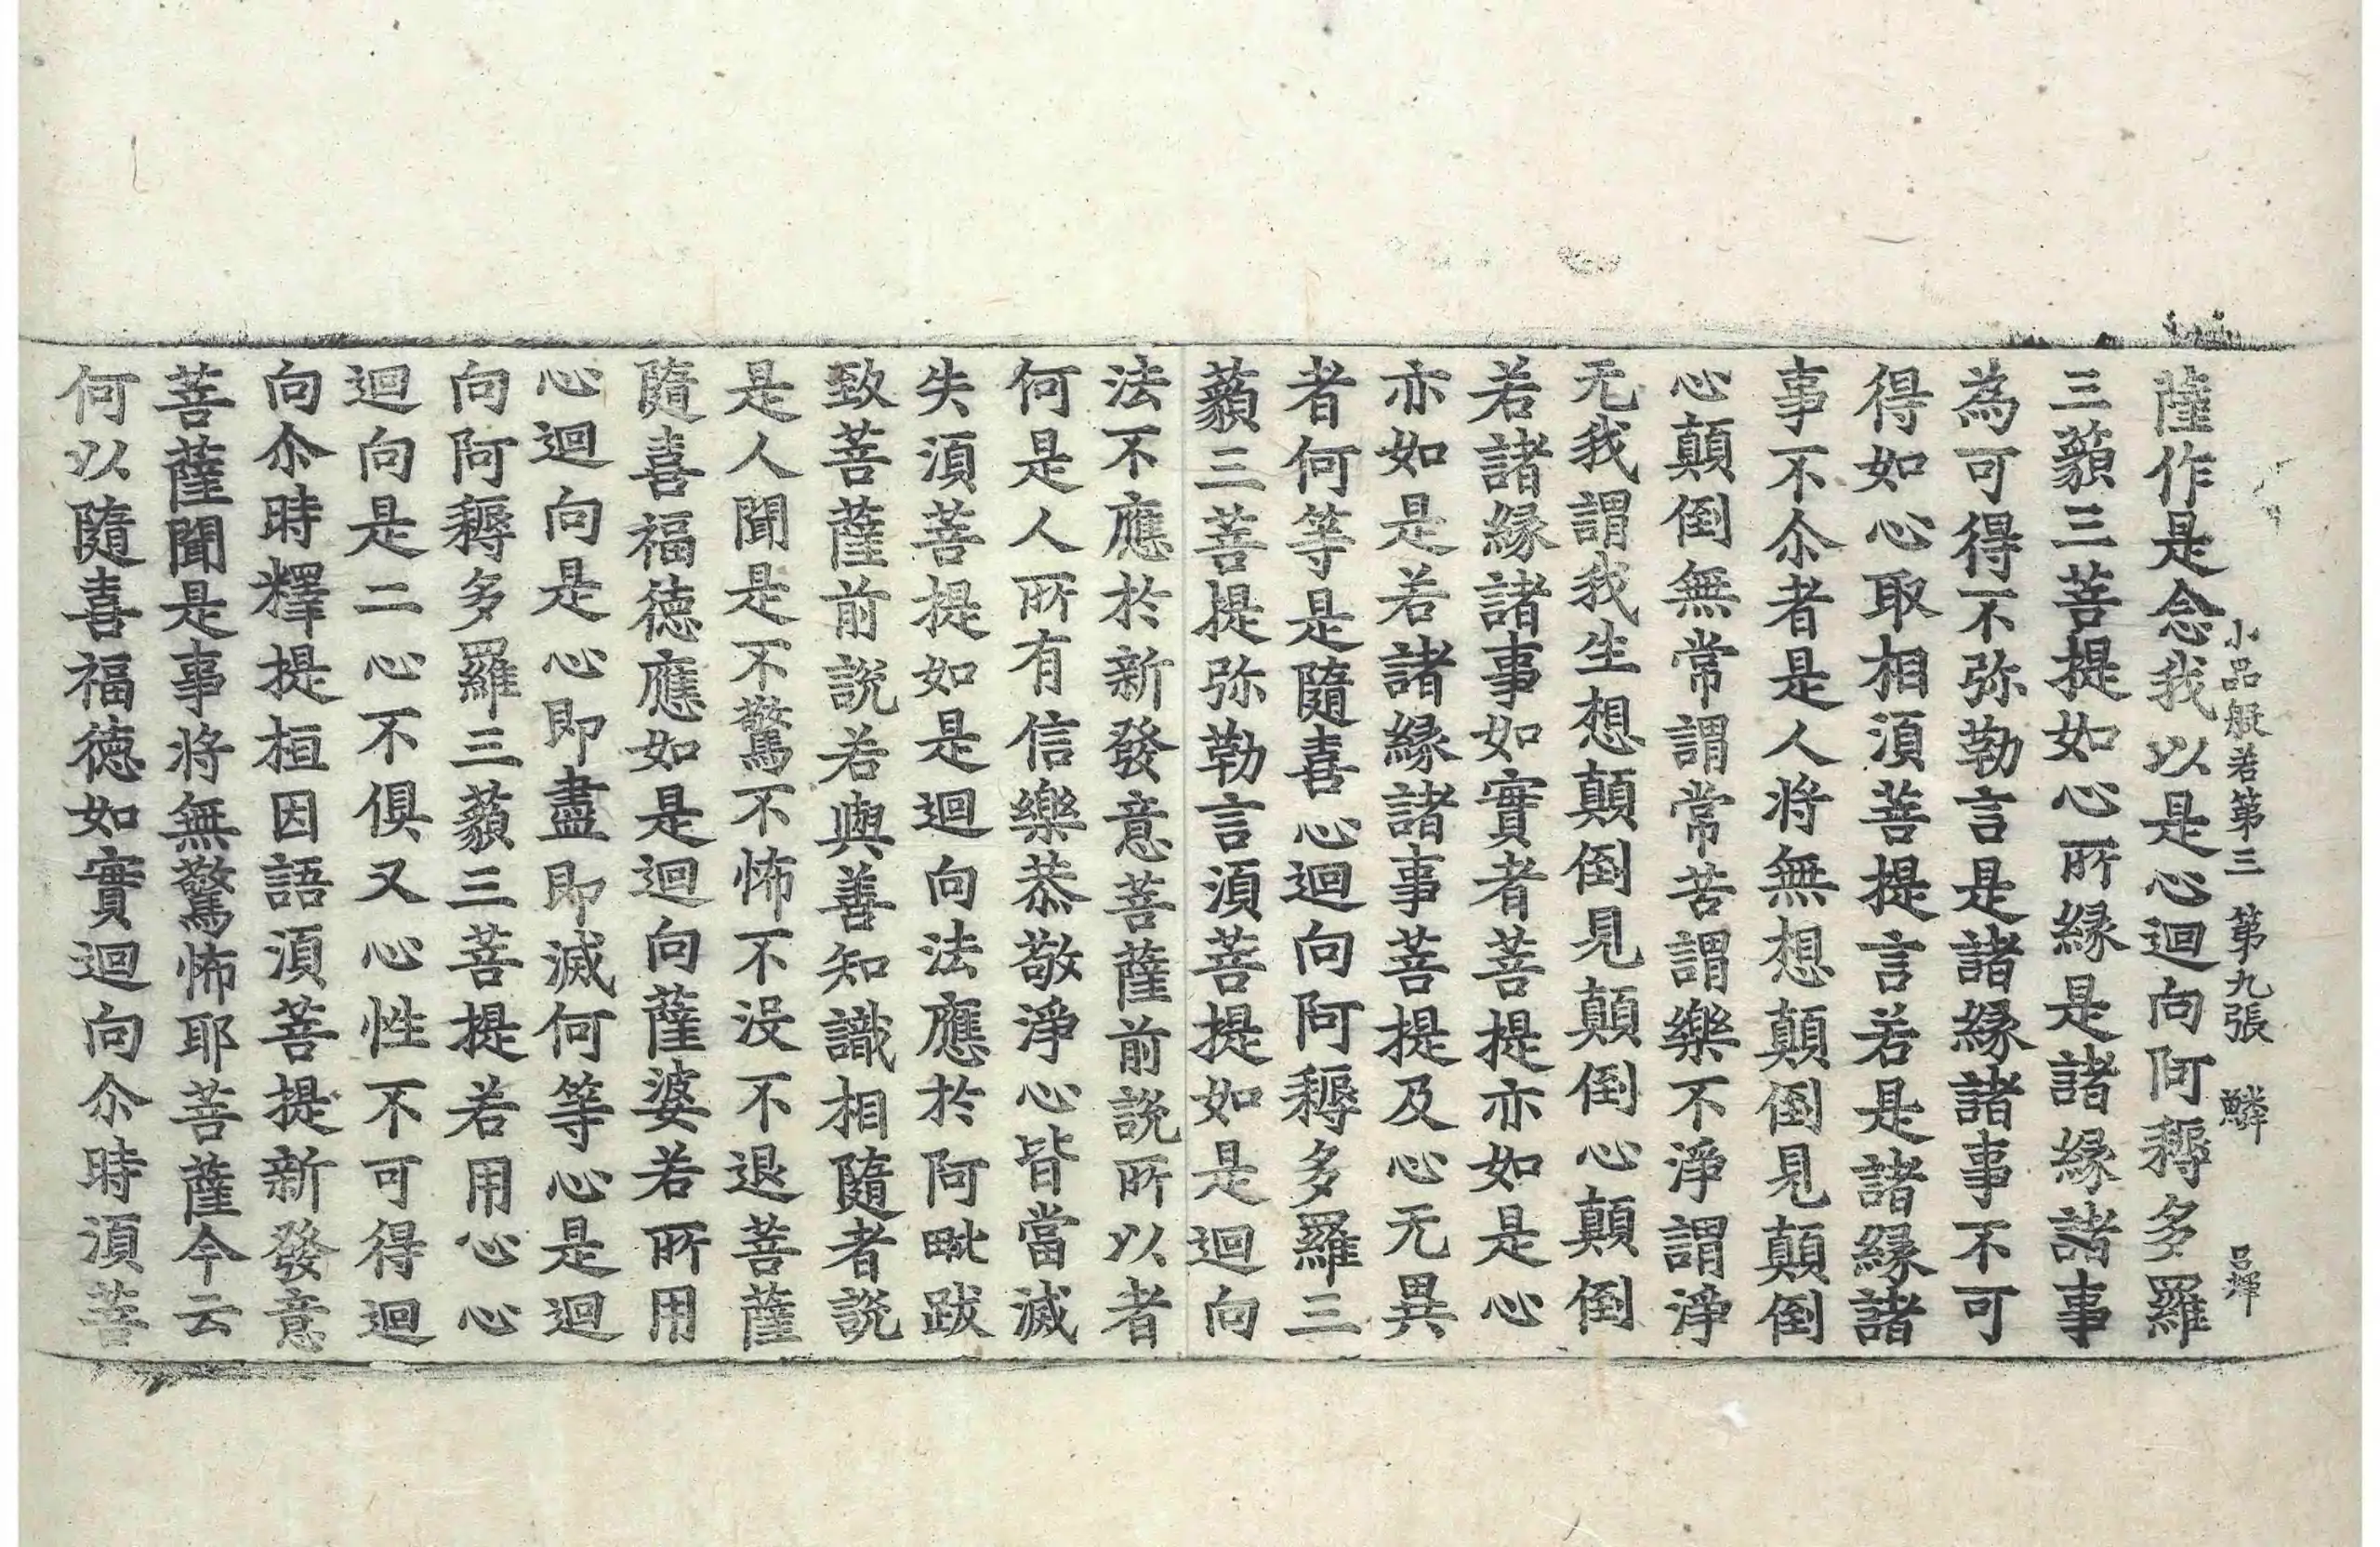 小品般若第三 第九張 鱗 呂輝
薩作是念我以是心迴向阿耨多羅
三藐三菩提如心所縁是諸縁諸事
為可得不弥勒言是諸縁諸事不可
得如心取相湏菩提言若是諸縁諸
事不尒者是人将無想顛倒見顛倒
心顛倒無常謂常苦謂樂不淨謂淨
无我謂我生想顛倒見顛倒心顛倒
若諸縁諸事如實者菩提亦如是心
亦如是若諸縁諸事菩提及心无異
者何等是隨喜心迴向阿耨多羅三
藐三菩提弥勒言湏菩提如是迴向
法不應於新發意菩薩前説所以者
何是人所有信樂恭敬淨心皆當滅
失湏菩提如是迴向法應於阿毗跋
致菩薩前説若與善知識相隨者説
是人聞是不驚不怖不没不退菩薩
隨喜福徳應如是迴向薩婆若所用
心迴向是心即盡即滅何等心是迴
向阿耨多羅三藐三菩提若用心心
迴向是二心不俱又心性不可得迴
向尒時釋提桓因語湏菩提新發意
菩薩聞是事将無驚怖耶菩薩今云
何以隨喜福徳如實迴向尒時湏菩